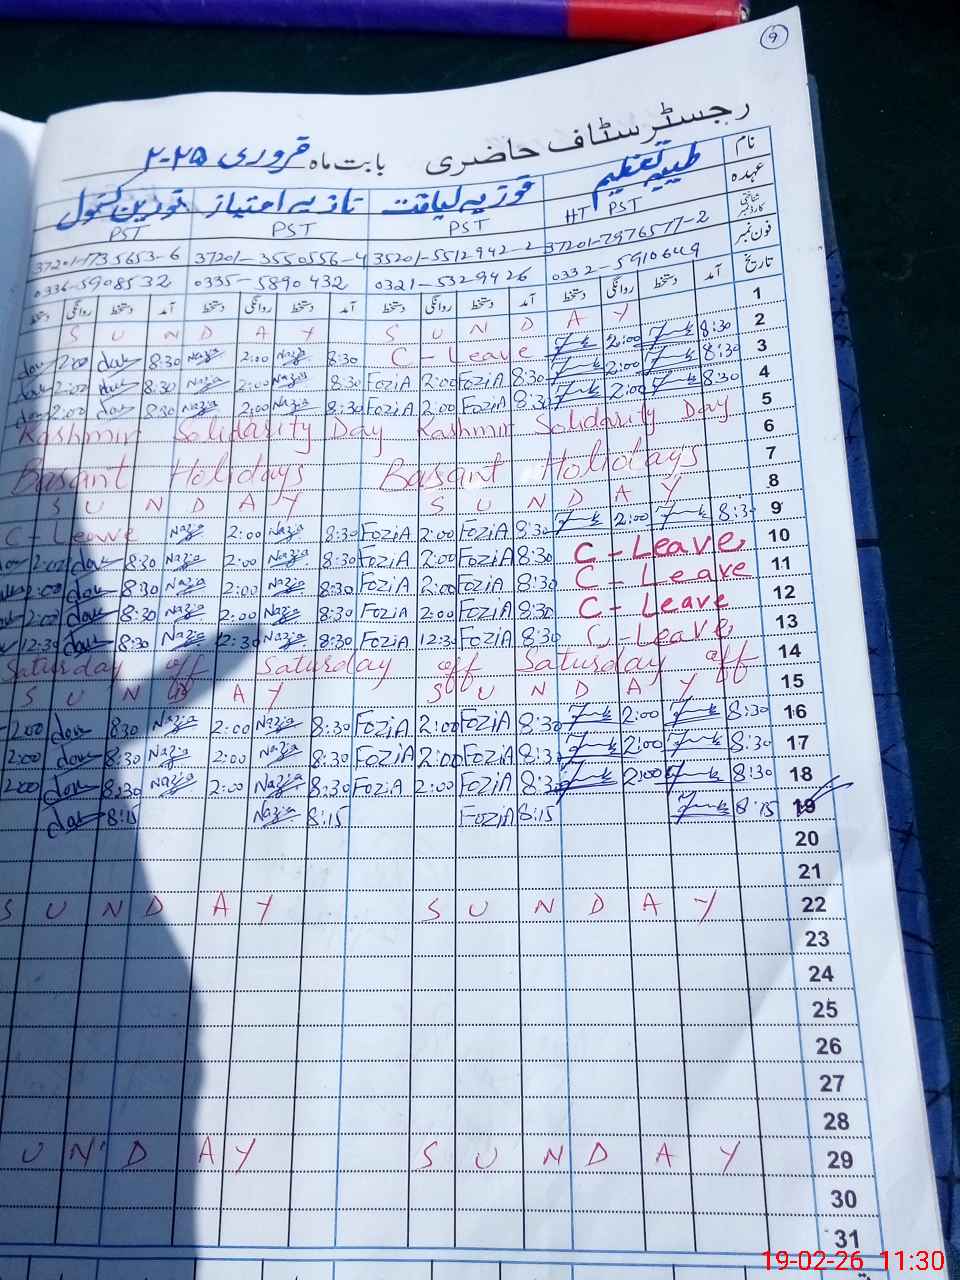 9
رجسٹر سٹاف حاضری بابت ماہ فروری ۲۰۲۵
نام طیبہ تعظیم فوزیہ لیاقت نازیہ امتیاز نورین کنول
عہدہ HT PST PST PST PST
شناختی کارڈ نمبر 37201-7976577-2 35201-5512942-2 37201-3550556-4 37201-1735653-6
فون نمبر 0332-5910649 0321-5329426 0335-5890432 0336-5908532
تاریخ آمد دستخط روانگی دستخط آمد دستخط روانگی دستخط آمد دستخط روانگی دستخط آمد دستخط روانگی دستخط
1 S U N D A Y S U N D A Y
2 2:00 8:30 C-Leave Nazia 2:00 Nazia 8:30 2:00 8:30
3 2:00 8:30 FoziA 2:00 FoziA 8:30 Nazia 2:00 Nazia 8:30 2:00 8:30
4 2:00 8:30 FoziA 2:00 FoziA 8:30 Nazia 2:00 Nazia 8:30 2:00 8:30
5 Kashmir Solidarity Day Kashmir Solidarity Day
6
7 Basant Holidays Basant Holidays
8 S U N D A Y S U N D A Y
9 C-Leave Nazia 2:00 Nazia 8:30 FoziA 2:00 FoziA 8:30 2:00 8:30
10 2:00 8:30 Nazia 2:00 Nazia 8:30 FoziA 2:00 FoziA 8:30 C-Leave
11 2:00 8:30 Nazia 2:00 Nazia 8:30 FoziA 2:00 FoziA 8:30 C-Leave
12 2:00 8:30 Nazia 2:00 Nazia 8:30 FoziA 2:00 FoziA 8:30 C-Leave
13 12:30 8:30 Nazia 12:30 Nazia 8:30 FoziA 12:30 FoziA 8:30 C-Leave
14 Saturday off Saturday off Saturday off
15 S U N D A Y S U N D A Y
16 2:00 8:30 Nazia 2:00 Nazia 8:30 FoziA 2:00 FoziA 8:30 2:00 8:30
17 2:00 8:30 Nazia 2:00 Nazia 8:30 FoziA 2:00 FoziA 8:30 2:00 8:30
18 2:00 8:30 Nazia 2:00 Nazia 8:30 FoziA 2:00 FoziA 8:30 2:00 8:30
19 8:15 Nazia 8:15 FoziA 8:15 8:15
20
21
22 S U N D A Y S U N D A Y
23
24
25
26
27
28
29 U N D A Y S U N D A Y
30
31
19-02-26 11:30